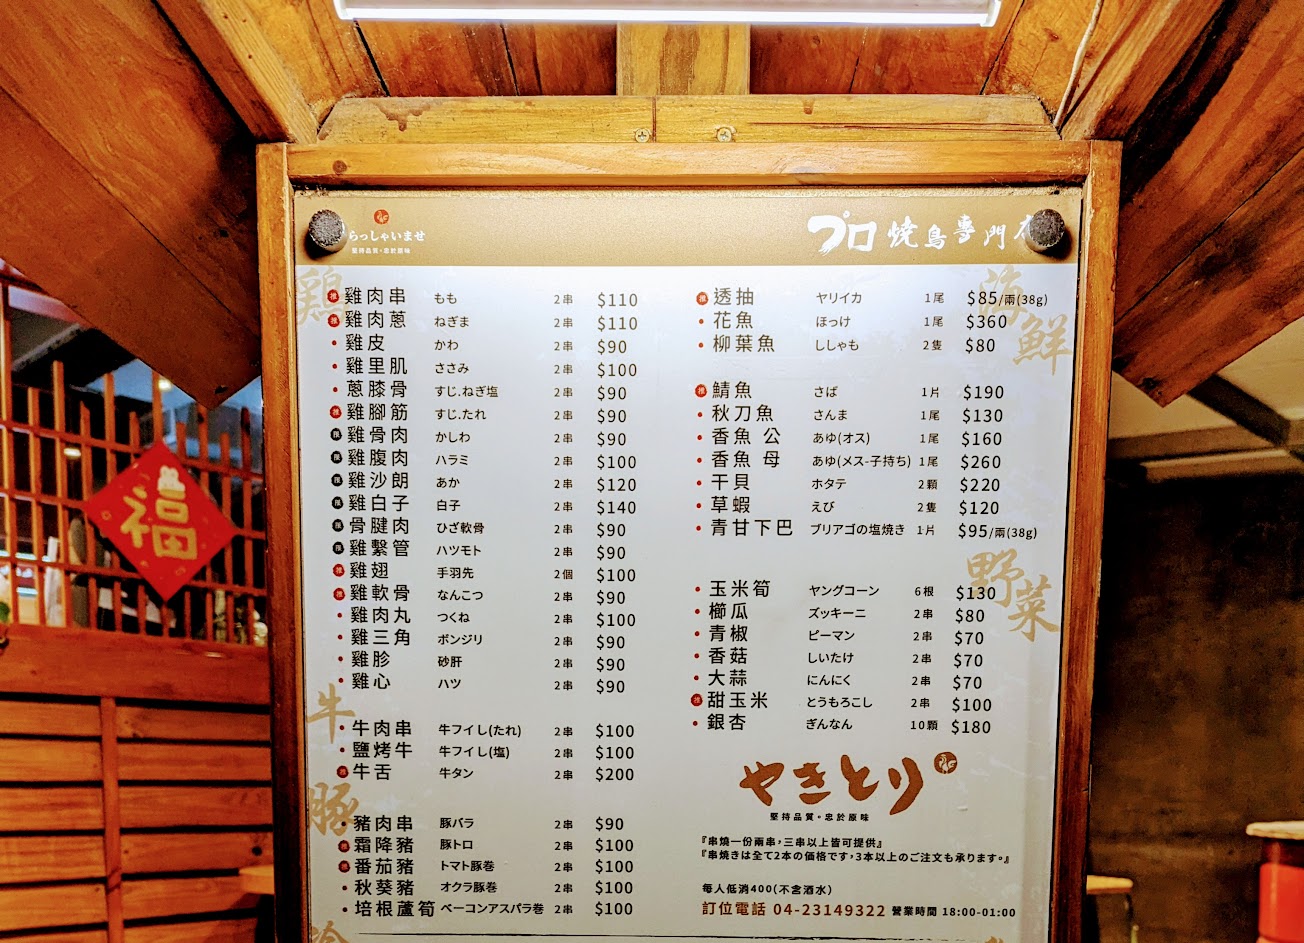 らっしゃいませ
堅持品質。忠於原味
プロ 焼鳥專門
鶏
推 雞肉串 もも 2串 $110
推 雞肉蔥 ねぎま 2串 $110
• 雞皮 かわ 2串 $90
• 雞里肌 ささみ 2串 $100
• 蔥膝骨 すじ.ねぎ塩 2串 $90
推 雞腳筋 すじ.たれ 2串 $90
限 雞骨肉 かしわ 2串 $90
限 雞腹肉 ハラミ 2串 $100
限 雞沙朗 あか 2串 $120
限 雞白子 白子 2串 $140
限 骨腱肉 ひざ軟骨 2串 $90
限 雞繫管 ハツモト 2串 $90
推 雞翅 手羽先 2個 $100
推 雞軟骨 なんこつ 2串 $90
• 雞肉丸 つくね 2串 $100
• 雞三角 ボンジリ 2串 $90
• 雞胗 砂肝 2串 $90
• 雞心 ハツ 2串 $90
牛
• 牛肉串 牛フイし(たれ) 2串 $100
• 鹽烤牛 牛フイし(塩) 2串 $100
推 牛舌 牛タン 2串 $200
豚
• 豬肉串 豚バラ 2串 $90
推 霜降豬 豚トロ 2串 $100
推 番茄豬 トマト豚巻 2串 $100
• 秋葵豬 オクラ豚巻 2串 $100
• 培根蘆筍 ベーコンアスパラ巻 2串 $100
海鮮
推 透抽 ヤリイカ 1尾 $85/兩(38g)
• 花魚 ほっけ 1尾 $360
• 柳葉魚 ししゃも 2隻 $80
推 鯖魚 さば 1片 $190
• 秋刀魚 さんま 1尾 $130
• 香魚 公 あゆ(オス) 1尾 $160
• 香魚 母 あゆ(メス-子持ち) 1尾 $260
• 干貝 ホタテ 2顆 $220
• 草蝦 えび 2隻 $120
• 青甘下巴 ブリアゴの塩焼き 1片 $95/兩(38g)
野菜
• 玉米筍 ヤングコーン 6根 $130
• 櫛瓜 ズッキーニ 2串 $80
• 青椒 ピーマン 2串 $70
• 香菇 しいたけ 2串 $70
• 大蒜 にんにく 2串 $70
推 甜玉米 とうもろこし 2串 $100
• 銀杏 ぎんなん 10顆 $180
やきとり
堅持品質。忠於原味
『串燒一份兩串，三串以上皆可提供』
『串焼きは全て2本の価格です，3本以上のご注文も承ります。』
每人低消400(不含酒水)
訂位電話 04-23149322 營業時間 18:00-01:00
福